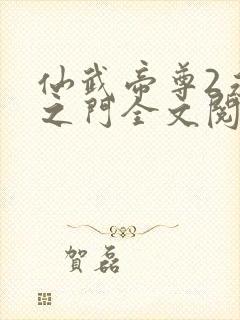 仙武帝尊2
之門全文閱
賀磊